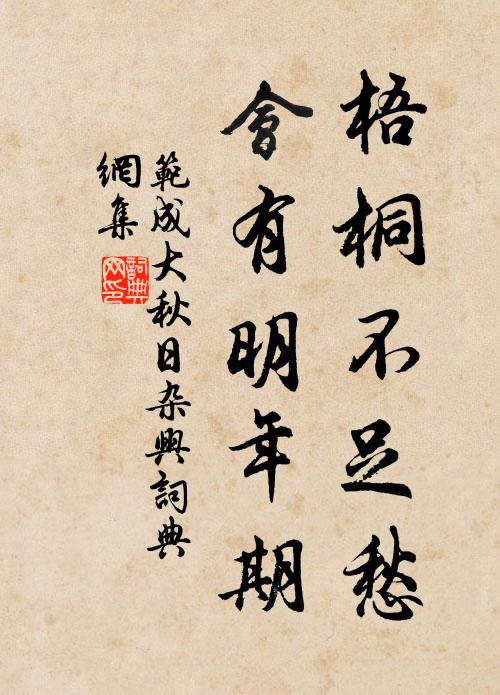 梧桐不足愁
會有明年期
範成大秋日杂興詞典
網集
詞典網印